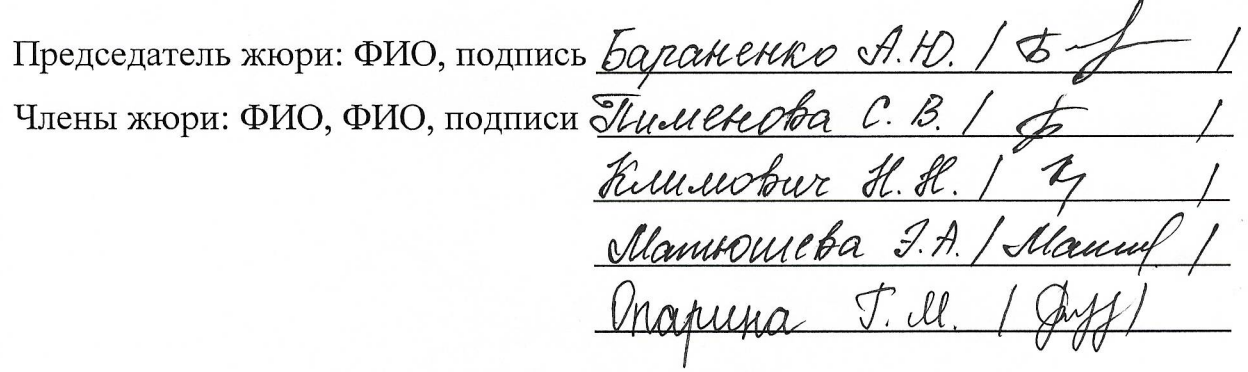 Председатель жюри: ФИО, подпись Бараненко А.Ю. / /
Члены жюри: ФИО, ФИО, подписи Пименова С. В. / /
Климович Н. Н. / /
Матюшева Э.А. / /
Опарина Г. М. / /